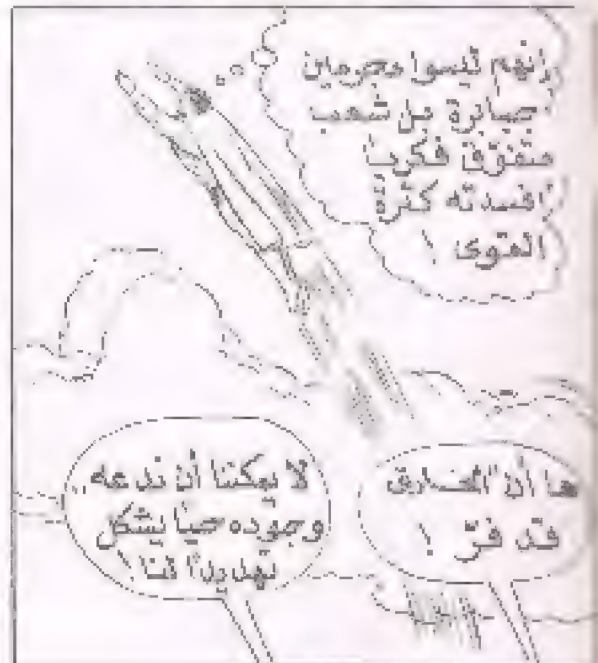 إنهم ليسوا مجرمين
جبابرة بل شعب
متفوّق فكرياً
أفسدته كثرة
القوى !
ها أن الخارق
قد فرّ !
لا يمكننا أن ندعه
وجوده حياً يشكل
تهديداً لنا !